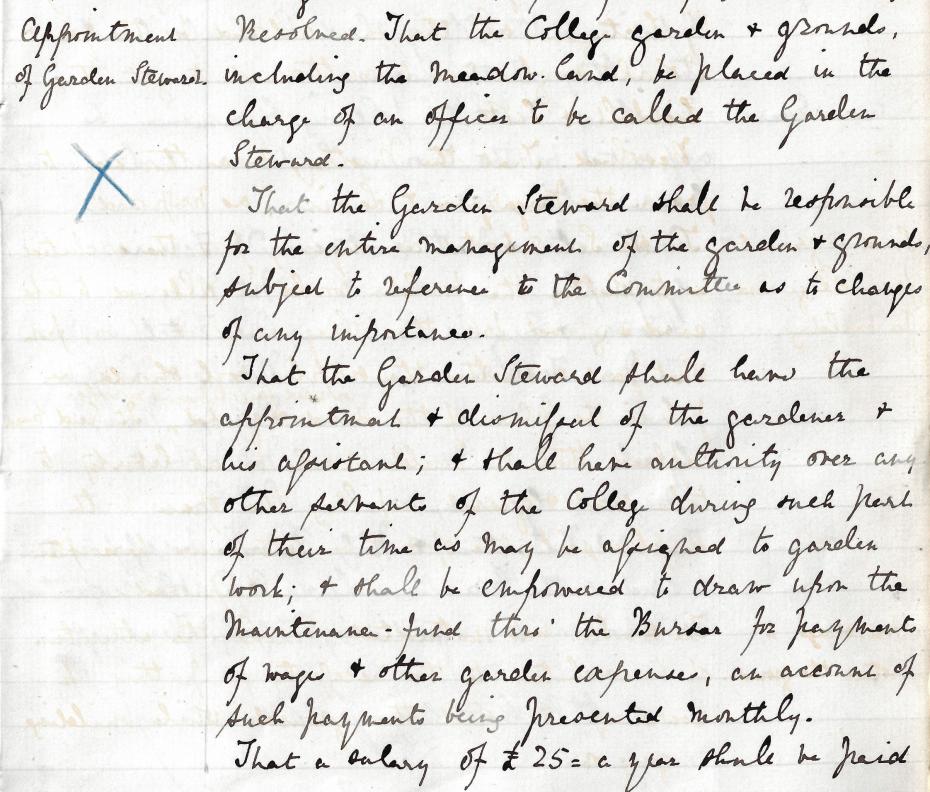 Appointment
of Garden Steward.
Resolved. That the College garden & grounds,
including the meadow-land, be placed in the
charge of an officer to be called the Garden
Steward.
That the Garden Steward shall be responsible
for the entire management of the garden & grounds,
subject to reference to the Committee as to changes
of any importance.
That the Garden Steward shall have the
appointment & dismissal of the gardener &
his assistant; & shall have authority over any
other servants of the College during such part
of their time as may be assigned to garden
work; & shall be empowered to draw upon the
Maintenance-fund thro' the Bursar for payments
of wages & other garden expenses, an account of
such payments being presented monthly.
That a salary of £25= a year shall be paid